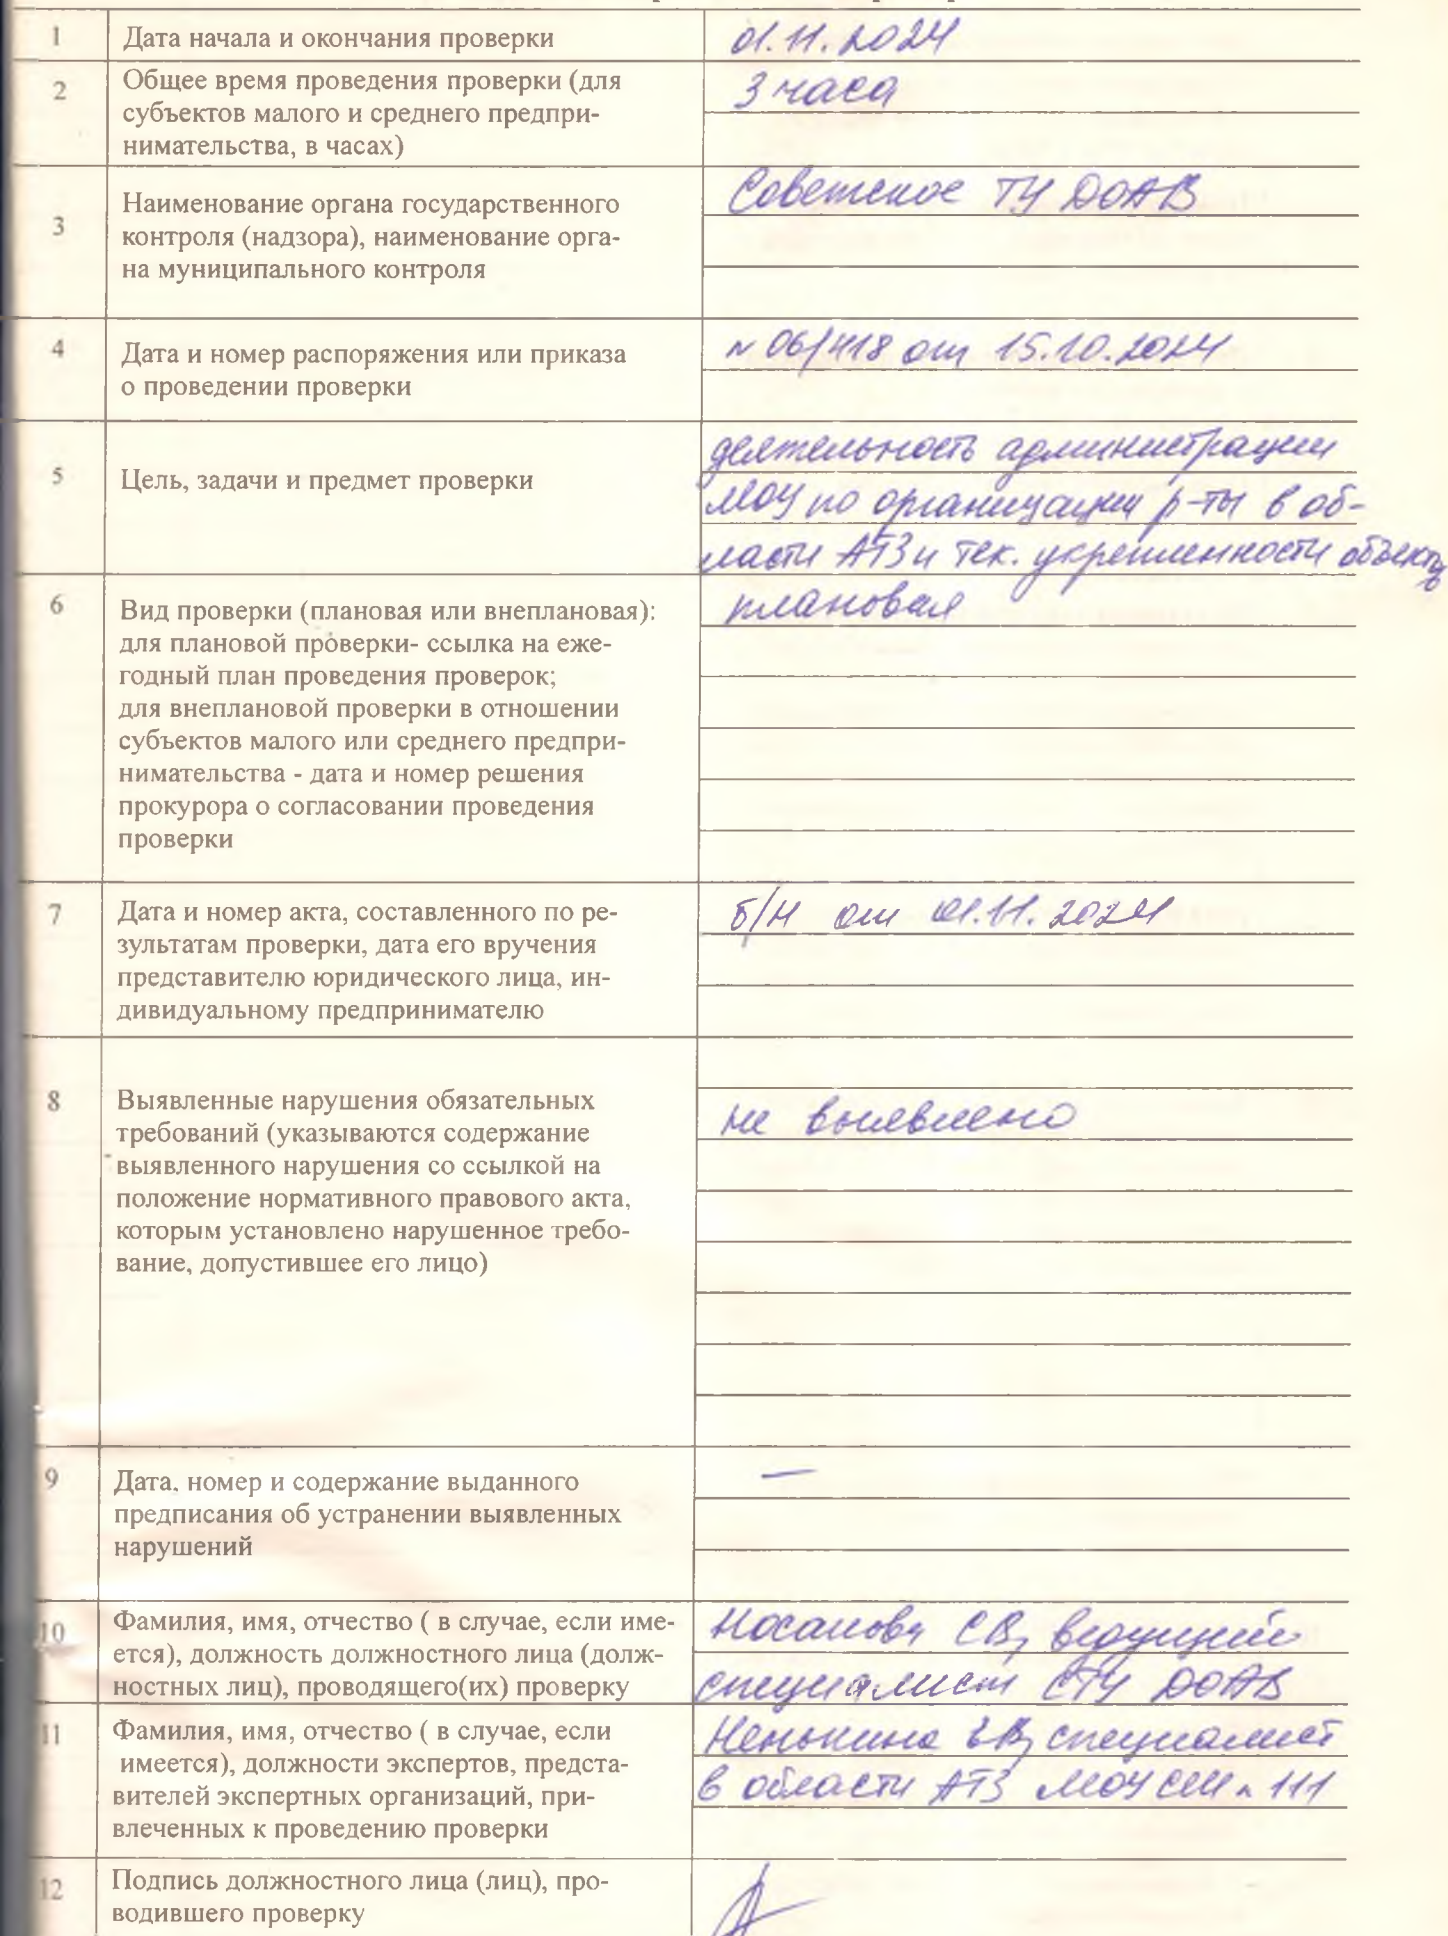 1 Дата начала и окончания проверки 01.11.2024
2 Общее время проведения проверки (для 3 часа
субъектов малого и среднего предпри-
нимательства, в часах)
3 Наименование органа государственного Советское ТУ ДОАВ
контроля (надзора), наименование орга-
на муниципального контроля
4 Дата и номер распоряжения или приказа № 06/418 от 15.10.2024
о проведении проверки
5 Цель, задачи и предмет проверки
деятельность администрации
МОУ по организации р-ты в об-
ласти АТЗ и тех. укрепленности объекта
6 Вид проверки (плановая или внеплановая): плановая
для плановой проверки- ссылка на еже-
годный план проведения проверок;
для внеплановой проверки в отношении
субъектов малого или среднего предпри-
нимательства - дата и номер решения
прокурора о согласовании проведения
проверки
7 Дата и номер акта, составленного по ре- б/н от 01.11.2024
зультатам проверки, дата его вручения
представителю юридического лица, ин-
дивидуальному предпринимателю
8 Выявленные нарушения обязательных не выявлено
требований (указываются содержание
выявленного нарушения со ссылкой на
положение нормативного правового акта,
которым установлено нарушенное требо-
вание, допустившее его лицо)
9 Дата, номер и содержание выданного —
предписания об устранении выявленных
нарушений
10 Фамилия, имя, отчество ( в случае, если име-
ется), должность должностного лица (долж-
ностных лиц), проводящего(их) проверку
СВ, ведущий
специалист СТУ ДОАВ
11 Фамилия, имя, отчество ( в случае, если
имеется), должности экспертов, предста-
вителей экспертных организаций, при-
влеченных к проведению проверки
Ненькина специалист
в области АТЗ МОУ СШ № 111
12 Подпись должностного лица (лиц), про-
водившего проверку